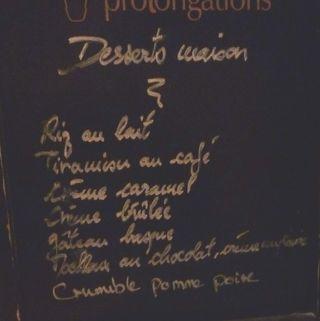 prolongations
Desserts maison
Riz au lait
Tiramisu au café
Crème caramel
Crème brûlée
gâteau basque
Moelleux au chocolat, crème anglaise
Crumble pomme poire